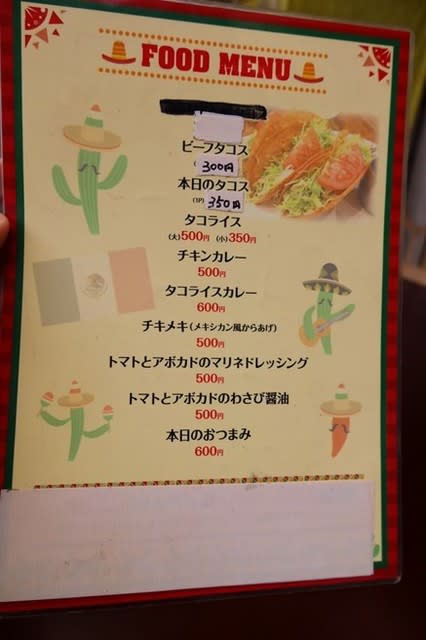 FOOD MENU
ビーフタコス
300円
本日のタコス
(1P) 350円
タコライス
(大)500円 (小)350円
チキンカレー
500円
タコライスカレー
600円
チキメキ(メキシカン風からあげ)
500円
トマトとアボカドのマリネドレッシング
500円
トマトとアボカドのわさび醤油
500円
本日のおつまみ
600円